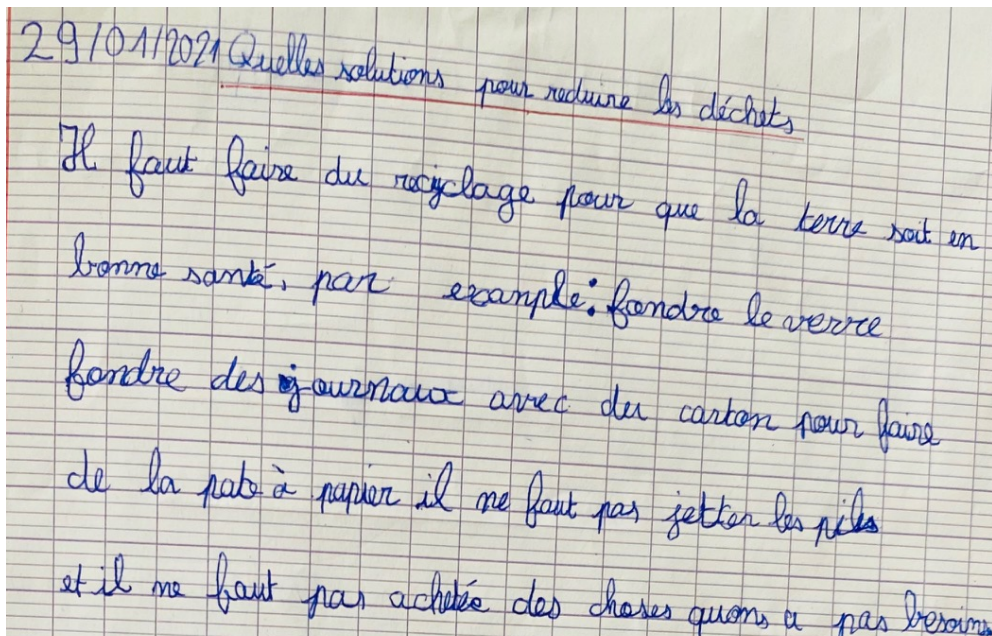 29/01/2021 Quelles solutions pour reduire les déchets
Il faut faire du recyclage pour que la terre soit en
bonne santé, par exanple: fondre le verre
fondre des journaux avec du carton pour faire
de la pate à papier il ne faut pas jetter les piles
et il ne faut pas achetée des choses quons a pas besoins